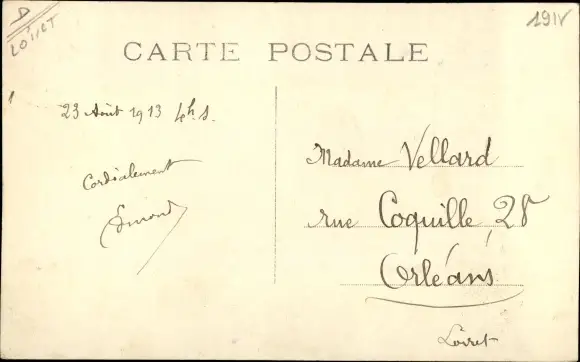 D
LOIRET
191V
CARTE POSTALE
23 Août 1913 4h. s.
Cordialement
Madame Vellard
rue Coquille, 28
Orléans
Loiret